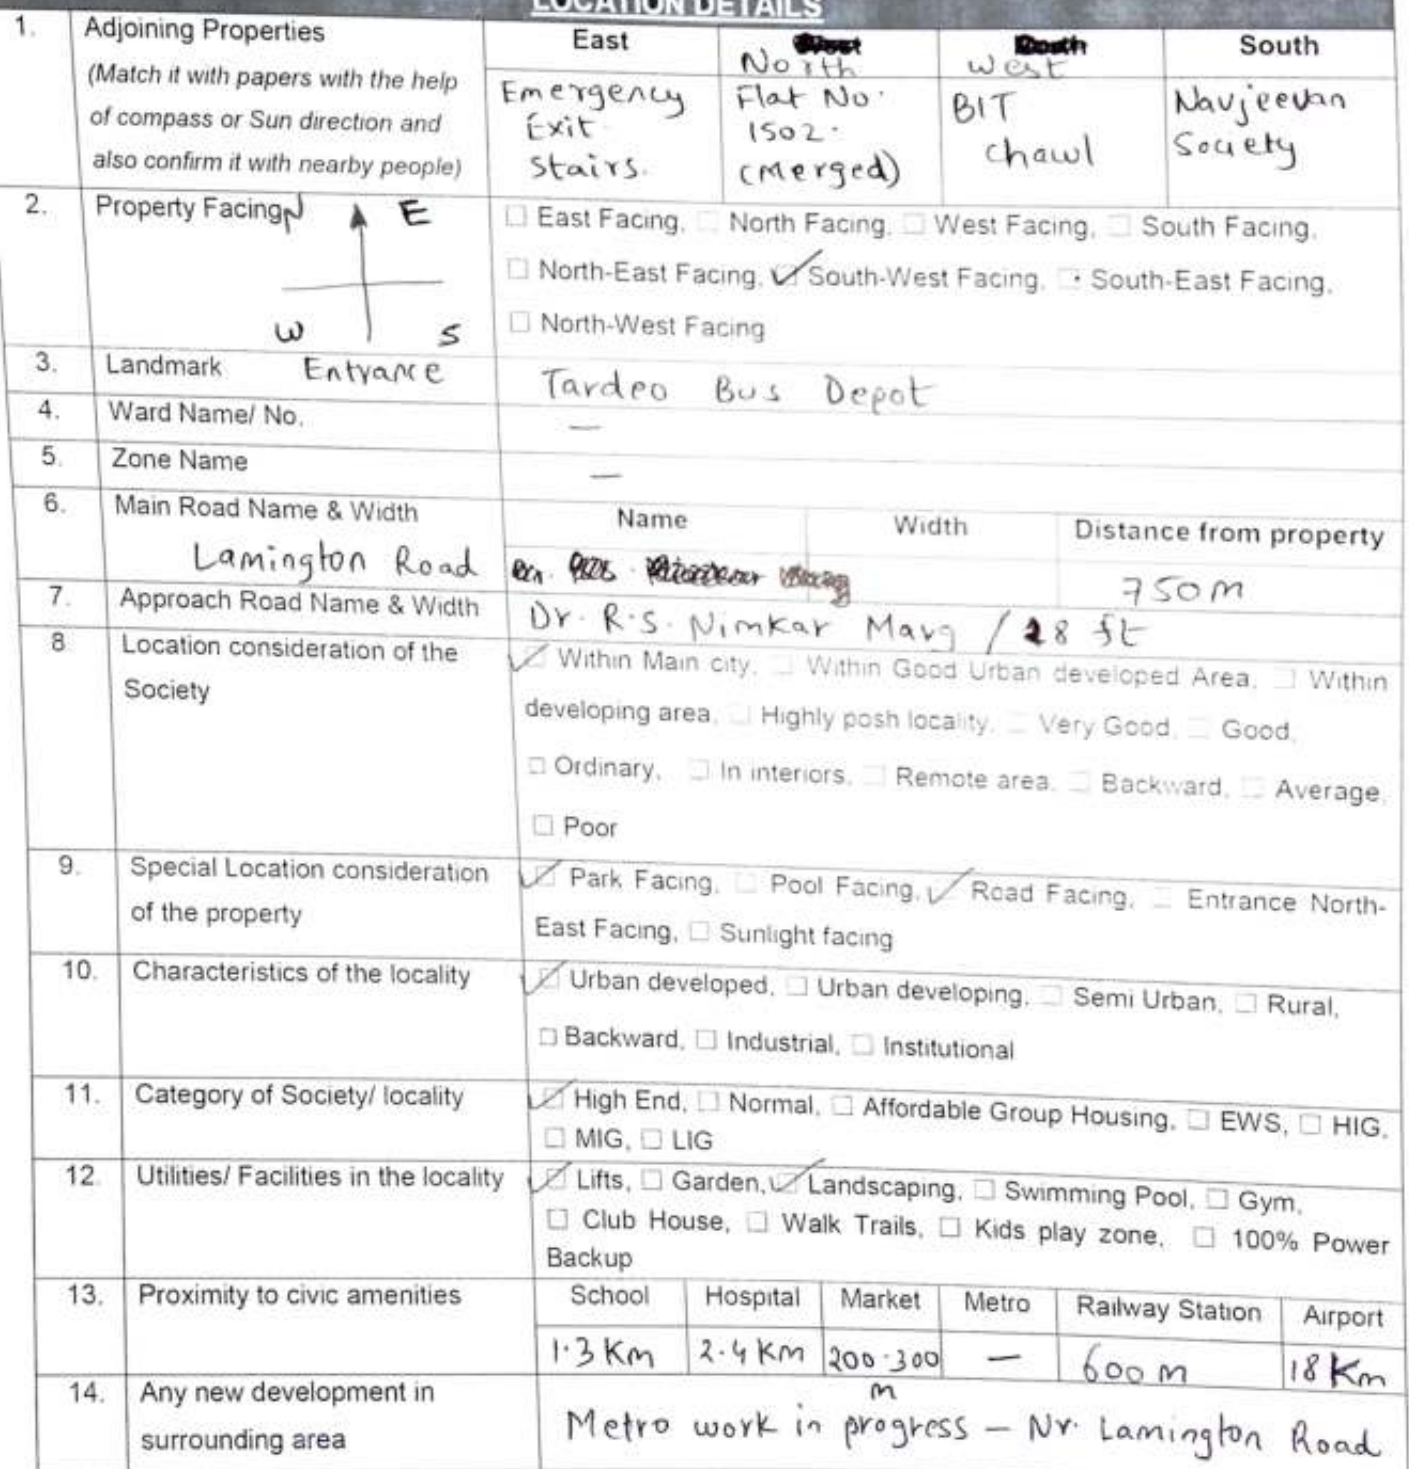 LOCATION DETAILS
1. Adjoining Properties
(Match it with papers with the help
of compass or Sun direction and
also confirm it with nearby people)
East North West South
Emergency
Exit
Stairs.
Flat No.
1502.
(merged)
BIT
chawl
Navjeevan
Society
2. Property Facing
N E
W S
Entrance
☐ East Facing, ☐ North Facing, ☐ West Facing, ☐ South Facing,
☐ North-East Facing, ☑ South-West Facing, ☐ South-East Facing,
☐ North-West Facing
3. Landmark Tardeo Bus Depot
4. Ward Name/ No. —
5. Zone Name —
6. Main Road Name & Width
Lamington Road
Name Width Distance from property
750m
7. Approach Road Name & Width Dr. R.S. Nimkar Marg / 28 ft
8 Location consideration of the
Society
☑ Within Main city, ☐ Within Good Urban developed Area, ☐ Within
developing area, ☐ Highly posh locality, ☐ Very Good, ☐ Good,
☐ Ordinary, ☐ In interiors, ☐ Remote area, ☐ Backward, ☐ Average,
☐ Poor
9. Special Location consideration
of the property
☑ Park Facing, ☐ Pool Facing, ☑ Road Facing, ☐ Entrance North-
East Facing, ☐ Sunlight facing
10. Characteristics of the locality
☑ Urban developed, ☐ Urban developing, ☐ Semi Urban, ☐ Rural,
☐ Backward, ☐ Industrial, ☐ Institutional
11. Category of Society/ locality
☑ High End, ☐ Normal, ☐ Affordable Group Housing, ☐ EWS, ☐ HIG,
☐ MIG, ☐ LIG
12. Utilities/ Facilities in the locality
☑ Lifts, ☐ Garden, ☑ Landscaping, ☐ Swimming Pool, ☐ Gym,
☐ Club House, ☐ Walk Trails, ☐ Kids play zone, ☐ 100% Power
Backup
13. Proximity to civic amenities
School Hospital Market Metro Railway Station Airport
1.3 Km 2.4 Km 200-300 m — 600 m 18 Km
14. Any new development in
surrounding area
Metro work in progress – Nr. Lamington Road